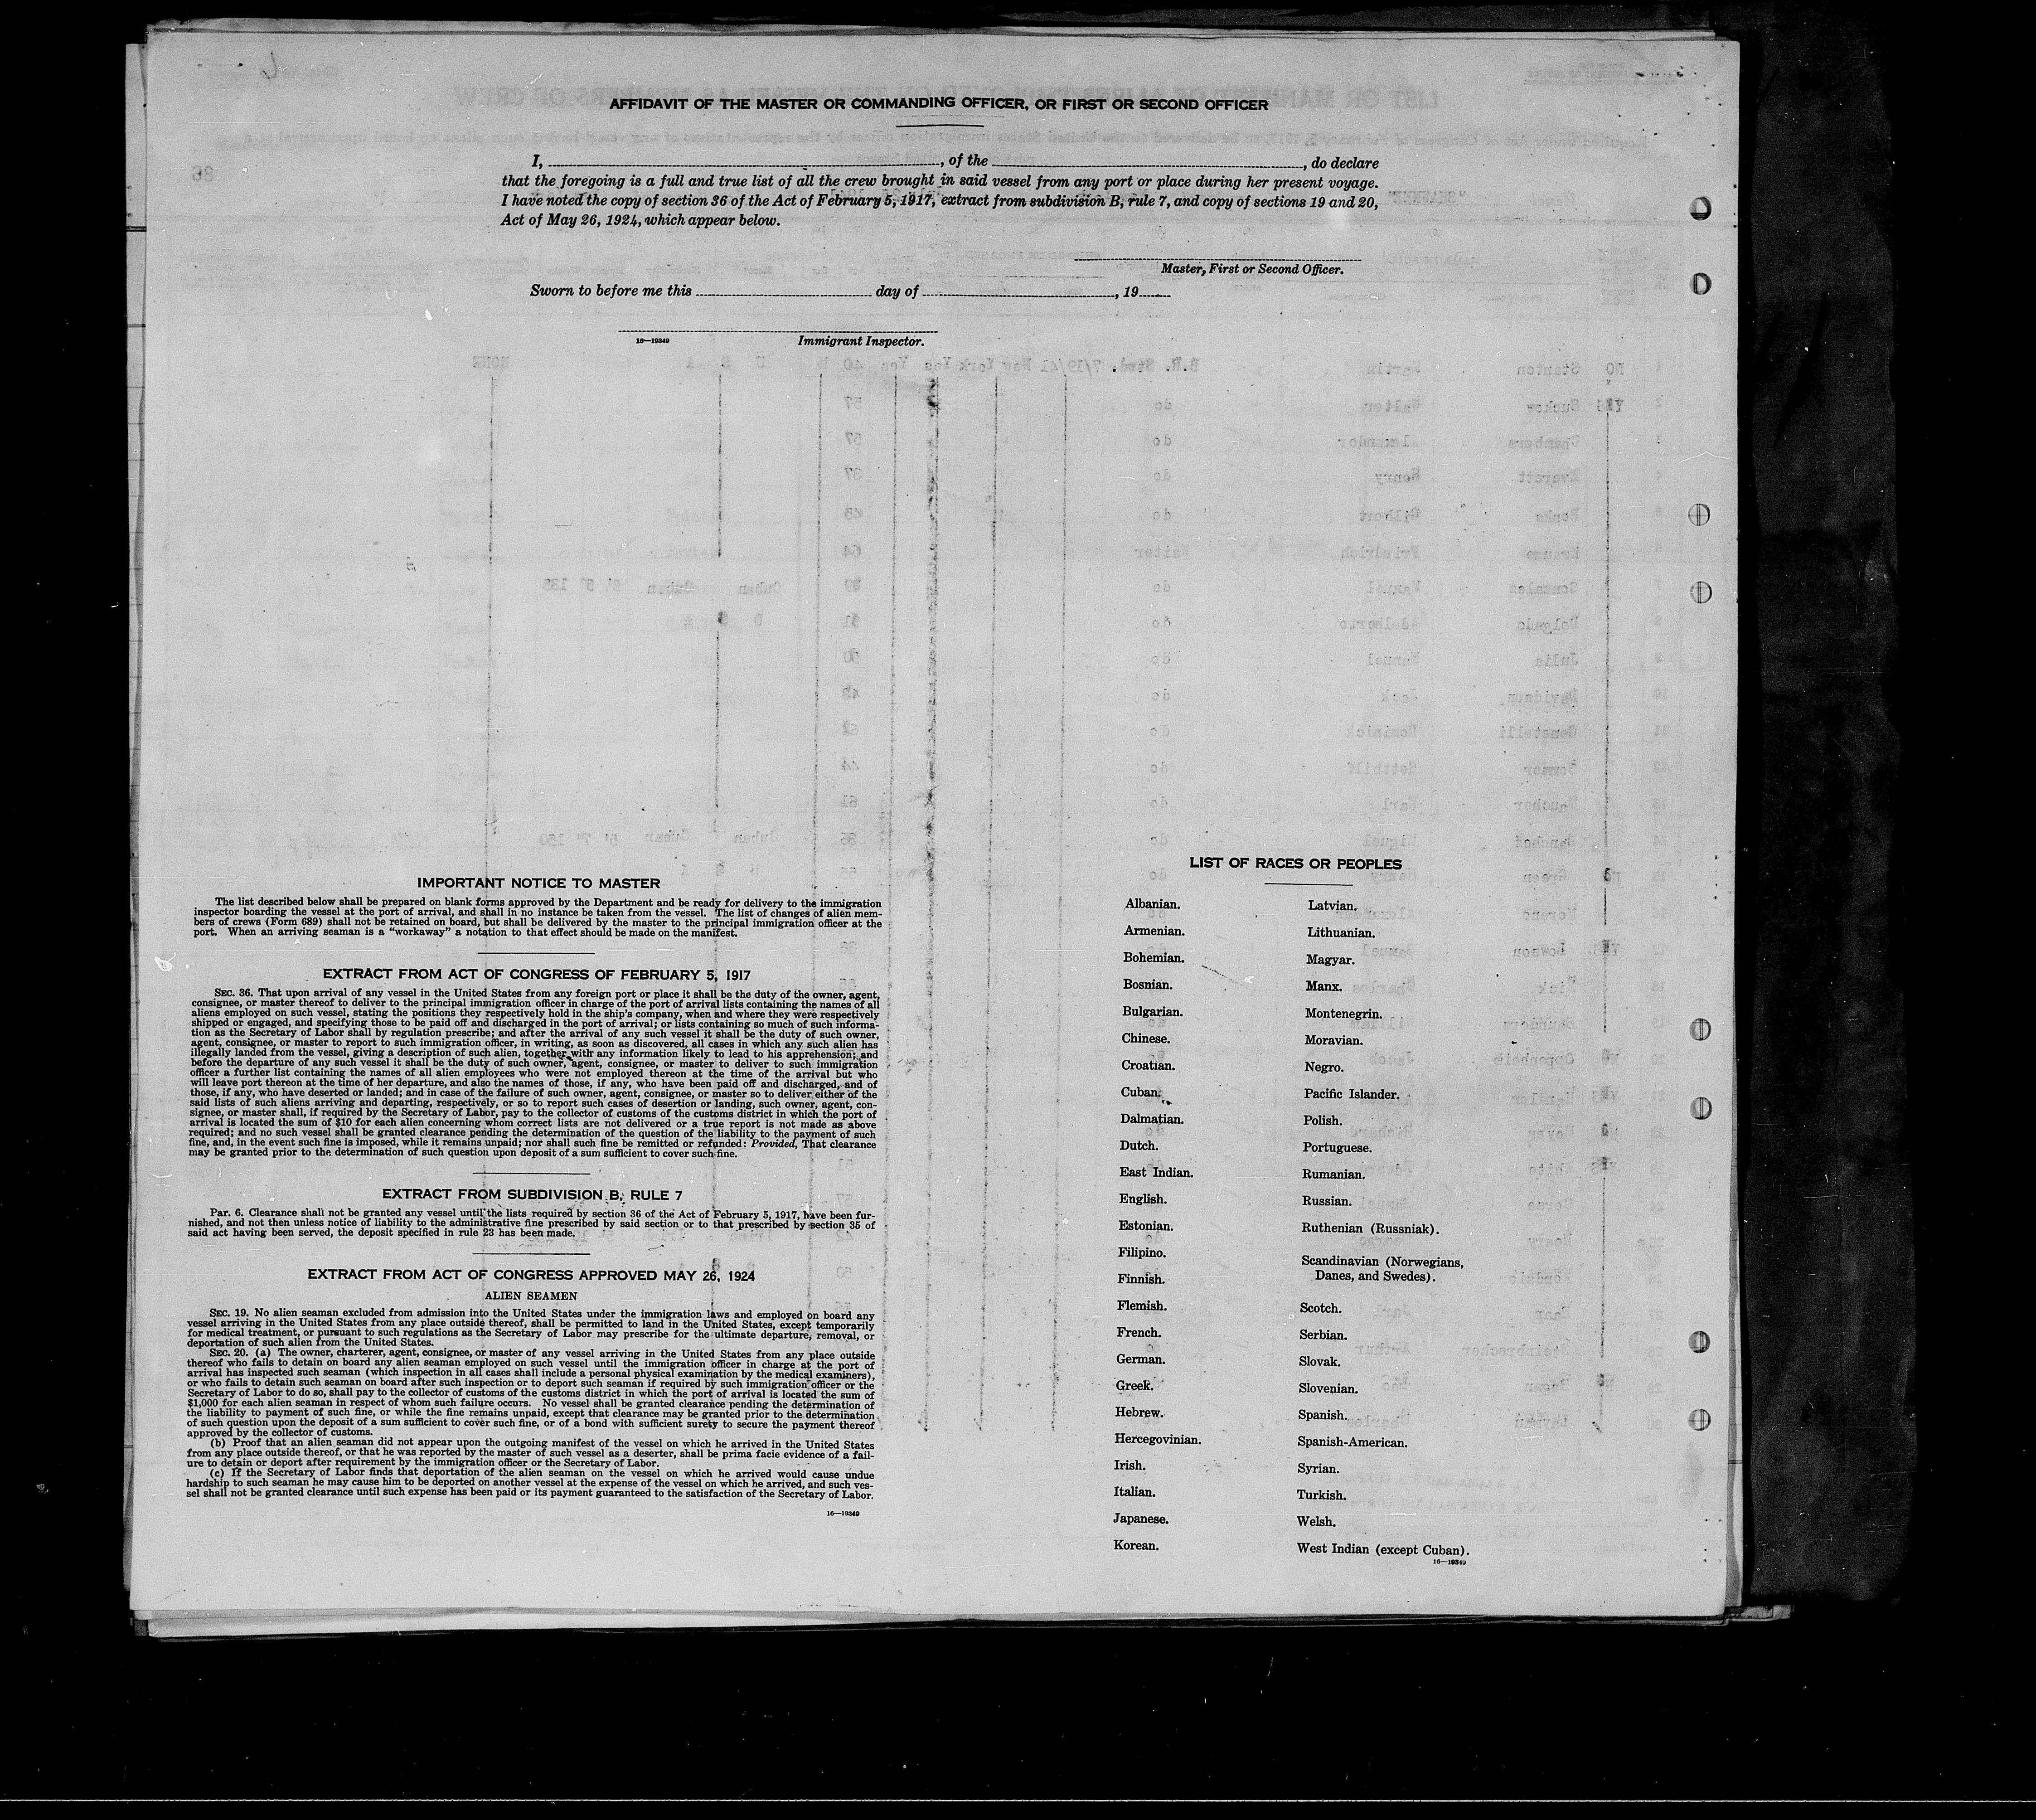 AFFIDAVIT OF THE MASTER OR COMMANDING OFFICER, OR FIRST OR SECOND OFFICER
I, , of the , do declare
that the foregoing is a full and true list of all the crew brought in said vessel from any port or place during her present voyage.
I have noted the copy of section 36 of the Act of February 5, 1917, extract from subdivision B, rule 7, and copy of sections 19 and 20,
Act of May 26, 1924, which appear below.
Master, First or Second Officer.
Sworn to before me this day of , 19
16—19349 Immigrant Inspector.
IMPORTANT NOTICE TO MASTER
The list described below shall be prepared on blank forms approved by the Department and be ready for delivery to the immigration
inspector boarding the vessel at the port of arrival, and shall in no instance be taken from the vessel. The list of changes of alien mem-
bers of crews (Form 689) shall not be retained on board, but shall be delivered by the master to the principal immigration officer at the
port. When an arriving seaman is a “workaway” a notation to that effect should be made on the manifest.
EXTRACT FROM ACT OF CONGRESS OF FEBRUARY 5, 1917
SEC. 36. That upon arrival of any vessel in the United States from any foreign port or place it shall be the duty of the owner, agent,
consignee, or master thereof to deliver to the principal immigration officer in charge of the port of arrival lists containing the names of all
aliens employed on such vessel, stating the positions they respectively hold in the ship's company, when and where they were respectively
shipped or engaged, and specifying those to be paid off and discharged in the port of arrival; or lists containing so much of such informa-
tion as the Secretary of Labor shall by regulation prescribe; and after the arrival of any such vessel it shall be the duty of such owner,
agent, consignee, or master to report to such immigration officer, in writing, as soon as discovered, all cases in which any such alien has
illegally landed from the vessel, giving a description of such alien, together with any information likely to lead to his apprehension; and
before the departure of any such vessel it shall be the duty of such owner, agent, consignee, or master to deliver to such immigration
officer a further list containing the names of all alien employees who were not employed thereon at the time of the arrival but who
will leave port thereon at the time of her departure, and also the names of those, if any, who have been paid off and discharged, and of
those, if any, who have deserted or landed; and in case of the failure of such owner, agent, consignee, or master so to deliver either of the
said lists of such aliens arriving and departing, respectively, or so to report such cases of desertion or landing, such owner, agent, con-
signee, or master shall, if required by the Secretary of Labor, pay to the collector of customs of the customs district in which the port of
arrival is located the sum of $10 for each alien concerning whom correct lists are not delivered or a true report is not made as above
required; and no such vessel shall be granted clearance pending the determination of the question of the liability to the payment of such
fine, and, in the event such fine is imposed, while it remains unpaid; nor shall such fine be remitted or refunded: Provided, That clearance
may be granted prior to the determination of such question upon deposit of a sum sufficient to cover such fine.
EXTRACT FROM SUBDIVISION B, RULE 7
Par. 6. Clearance shall not be granted any vessel until the lists required by section 36 of the Act of February 5, 1917, have been fur-
nished, and not then unless notice of liability to the administrative fine prescribed by said section or to that prescribed by section 35 of
said act having been served, the deposit specified in rule 23 has been made.
EXTRACT FROM ACT OF CONGRESS APPROVED MAY 26, 1924
ALIEN SEAMEN
SEC. 19. No alien seaman excluded from admission into the United States under the immigration laws and employed on board any
vessel arriving in the United States from any place outside thereof, shall be permitted to land in the United States, except temporarily
for medical treatment, or pursuant to such regulations as the Secretary of Labor may prescribe for the ultimate departure, removal, or
deportation of such alien from the United States.
SEC. 20. (a) The owner, charterer, agent, consignee, or master of any vessel arriving in the United States from any place outside
thereof who fails to detain on board any alien seaman employed on such vessel until the immigration officer in charge at the port of
arrival has inspected such seaman (which inspection in all cases shall include a personal physical examination by the medical examiners),
or who fails to detain such seaman on board after such inspection or to deport such seaman if required by such immigration officer or the
Secretary of Labor to do so, shall pay to the collector of customs of the customs district in which the port of arrival is located the sum of
$1,000 for each alien seaman in respect of whom such failure occurs. No vessel shall be granted clearance pending the determination of
the liability to payment of such fine, or while the fine remains unpaid, except that clearance may be granted prior to the determination
of such question upon the deposit of a sum sufficient to cover such fine, or of a bond with sufficient surety to secure the payment thereof
approved by the collector of customs.
(b) Proof that an alien seaman did not appear upon the outgoing manifest of the vessel on which he arrived in the United States
from any place outside thereof, or that he was reported by the master of such vessel as a deserter, shall be prima facie evidence of a fail-
ure to detain or deport after requirement by the immigration officer or the Secretary of Labor.
(c) If the Secretary of Labor finds that deportation of the alien seaman on the vessel on which he arrived would cause undue
hardship to such seaman he may cause him to be deported on another vessel at the expense of the vessel on which he arrived, and such ves-
sel shall not be granted clearance until such expense has been paid or its payment guaranteed to the satisfaction of the Secretary of Labor.
16—19349
LIST OF RACES OR PEOPLES
Albanian.
Armenian.
Bohemian.
Bosnian.
Bulgarian.
Chinese.
Croatian.
Cuban.
Dalmatian.
Dutch.
East Indian.
English.
Estonian.
Filipino.
Finnish.
Flemish.
French.
German.
Greek.
Hebrew.
Hercegovinian.
Irish.
Italian.
Japanese.
Korean.
Latvian.
Lithuanian.
Magyar.
Manx.
Montenegrin.
Moravian.
Negro.
Pacific Islander.
Polish.
Portuguese.
Rumanian.
Russian.
Ruthenian (Russniak).
Scandinavian (Norwegians,
Danes, and Swedes).
Scotch.
Serbian.
Slovak.
Slovenian.
Spanish.
Spanish-American.
Syrian.
Turkish.
Welsh.
West Indian (except Cuban).
16—19349